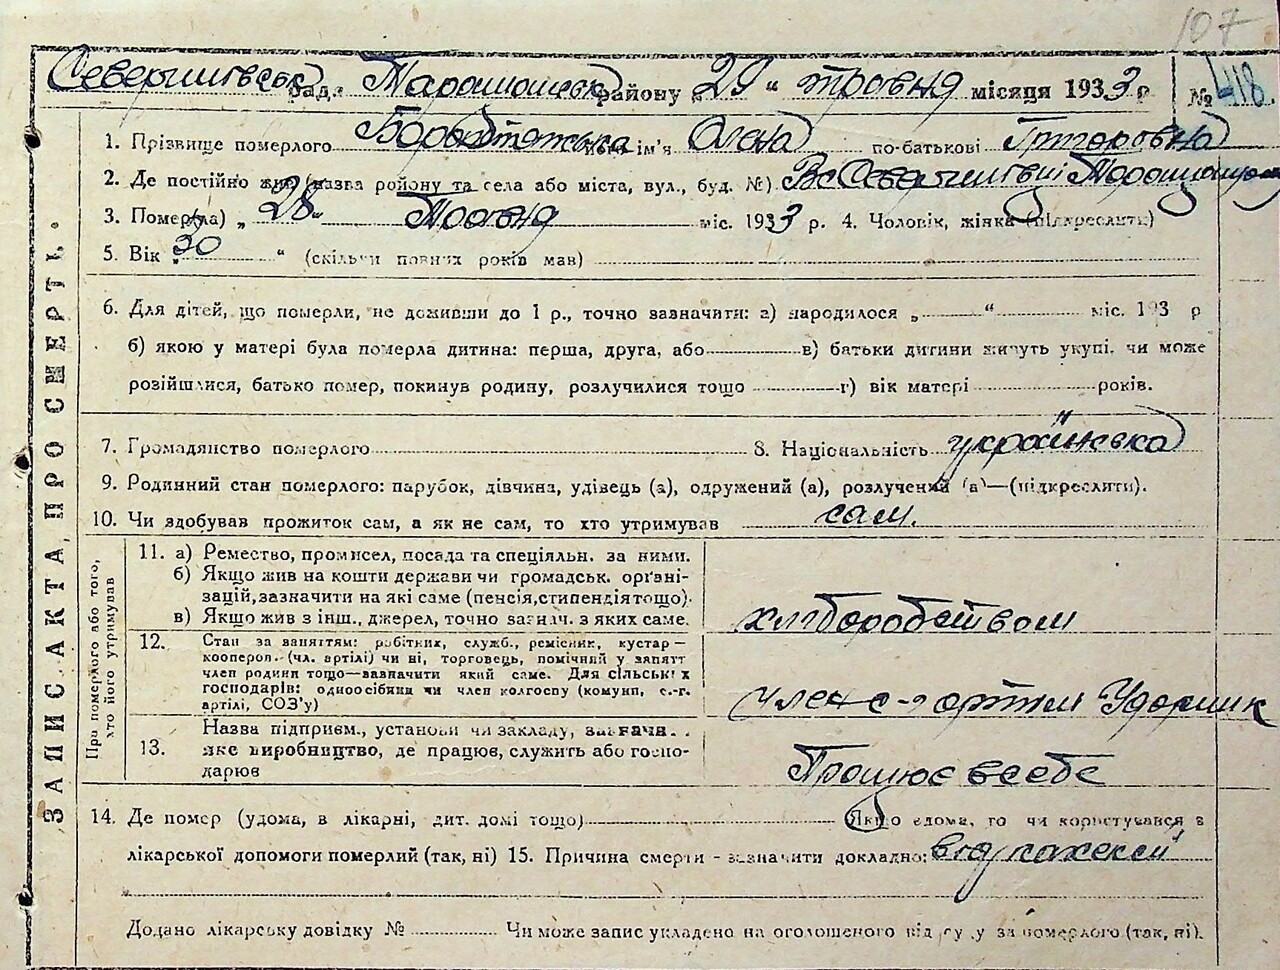 107
рада Таращанськ району „29“ травня місяця 1933 р № 418.
1. Прізвище померлого його ім'я Олена по-батькові Григоровна
2. Де постійно жив (назва району та села або міста, вул., буд. №)
3. Помер(ла) „28“ Травня міс. 1933 р. 4. Чоловік, жінка (підкреслити)
5. Вік „30“ (скільки повних років мав)
6. Для дітей, що померли, не доживши до 1 р., точно зазначити: а) народилося „ “ міс. 193 р
б) якою у матері була померла дитина: перша, друга, або в) батьки дитини живуть укупі. чи може
розійшлися, батько помер, покинув родину, розлучилися тощо г) вік матері років.
7. Громадянство померлого 8. Національність українська
9. Родинний стан померлого: парубок, дівчина, удівець (а), одружений (а), розлучений (а)—(підкреслити).
10. Чи здобував прожиток сам, а як не сам, то хто утримував сам.
11. а) Ремество, промисел, посада та спеціяльн. за ними.
б) Якщо жив на кошти держави чи громадськ. орґані-
зацій, зазначити на які саме (пенсія, стипендія тощо).
в) Якщо жив з інш., джерел, точно зазнач. з яких саме.
хліборобством
12. Стан за заняттям: робітник, служб., ремісник, кустар—
кооперов. (чл. артілі) чи ні, торговець, помічний у занятт
член родини тощо—зазначити який саме. Для сільськіх
господарів: одноосібник чи член колгоспу (комуни, с.-г.
артілі, СОЗ'у)
член с-г артіли Ударник
13. Назва підприєм., установи чи закладу, зазнача.
яке виробництво, де працює, служить або госпо-
дарює
Працює в себе
14. Де помер (удома, в лікарні, дит. домі тощо) Якщо вдома, то чи користувався з
лікарської допомоги померлий (так, ні) 15. Причина смерти - зазначити докладно: від кахексії
Додано лікарську довідку № Чи може запис укладено на оголошеного від суду за померлого (так, ні).
ЗАПИС АКТА ПРО СМЕРТЬ.
При померлого або того,
хто його утримував